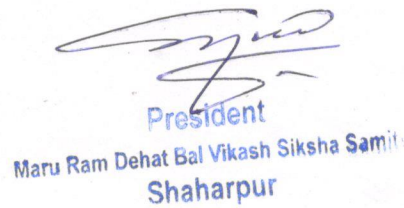 President
Maru Ram Dehat Bal Vikash Siksha Samit
Shaharpur